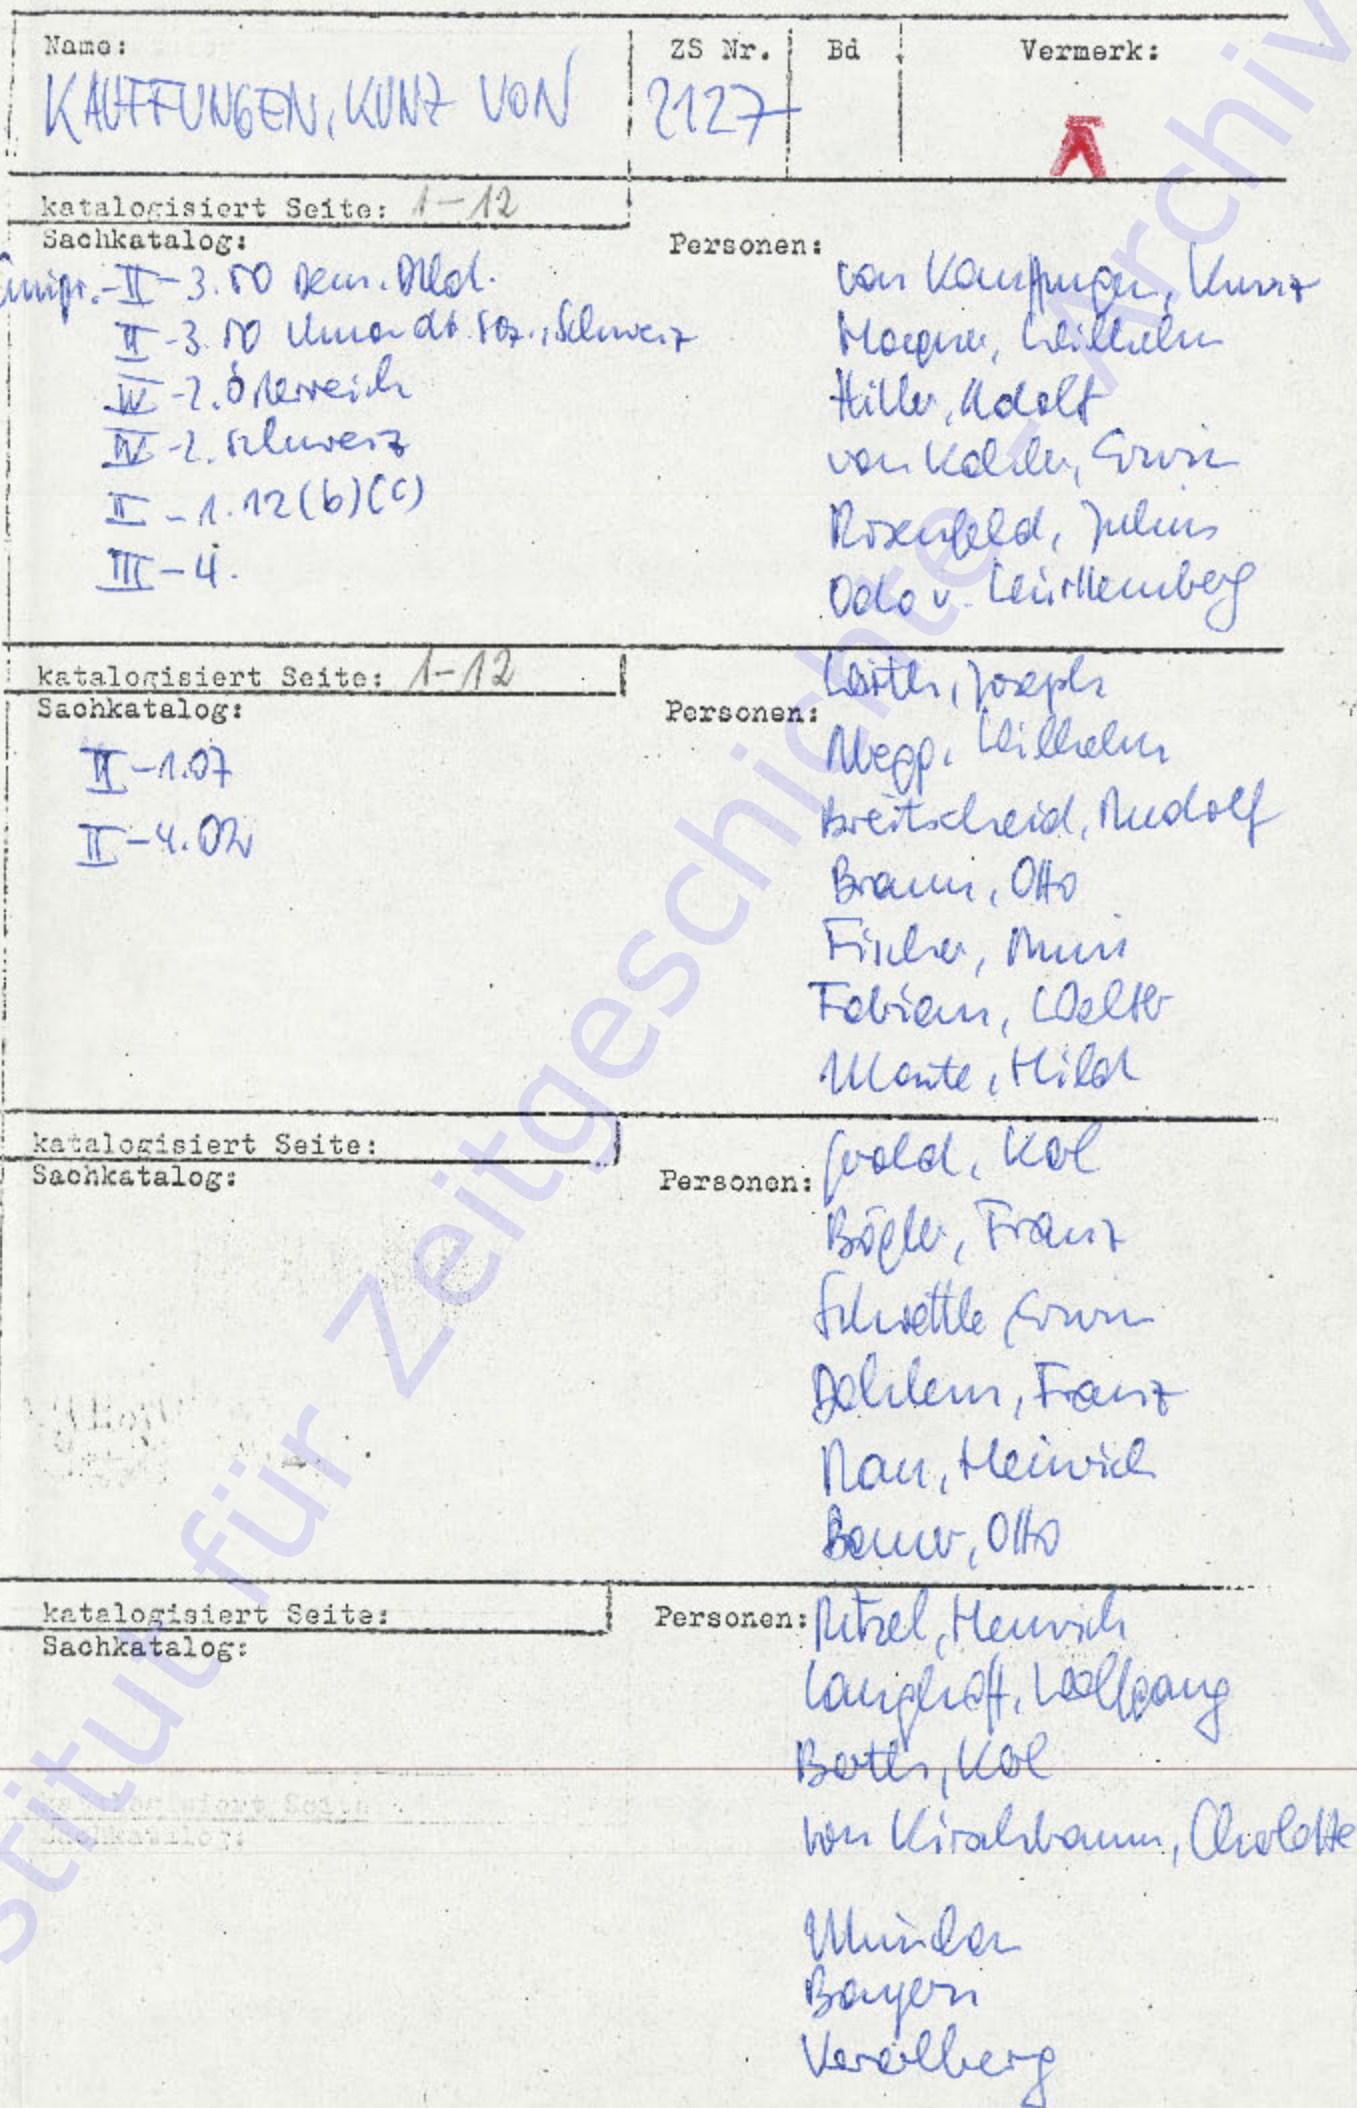 Name:
KAUFFUNGEN, KUNZ VON
ZS Nr.
2127
Bd
Vermerk:
katalogisiert Seite: 1-12
Sachkatalog:
II-3.50 Dem. Dtld.
II-3.50 Schweiz
IV-2. Österreich
IV-2. Schweiz
II-1.12(b)(c)
III-4.
Personen:
von Kauffungen, Kunz
Hoegner, Wilhelm
Hitler, Adolf
von Kahler, Erwin
Rosenfeld, Julius
Odo v. Württemberg
katalogisiert Seite: 1-12
Sachkatalog:
II-1.07
II-4.02
Personen:
Wirth, Joseph
Wilhelm
Breitscheid, Rudolf
Braun, Otto
Fischer,
Fabian, Walter
Monte, Hilda
katalogisiert Seite:
Sachkatalog:
Personen:
Gerold, Karl
Bögler, Franz
Schoettle Erwin
Dahlem, Franz
Rau, Heinrich
Bauer, Otto
katalogisiert Seite:
Sachkatalog:
Personen:
Ritzel, Heinrich
Langhoff, Wolfgang
Barth, Karl
von Kirschbaum, Charlotte
München
Bayern
Vorarlberg
Institut für Zeitgeschichte - Archiv